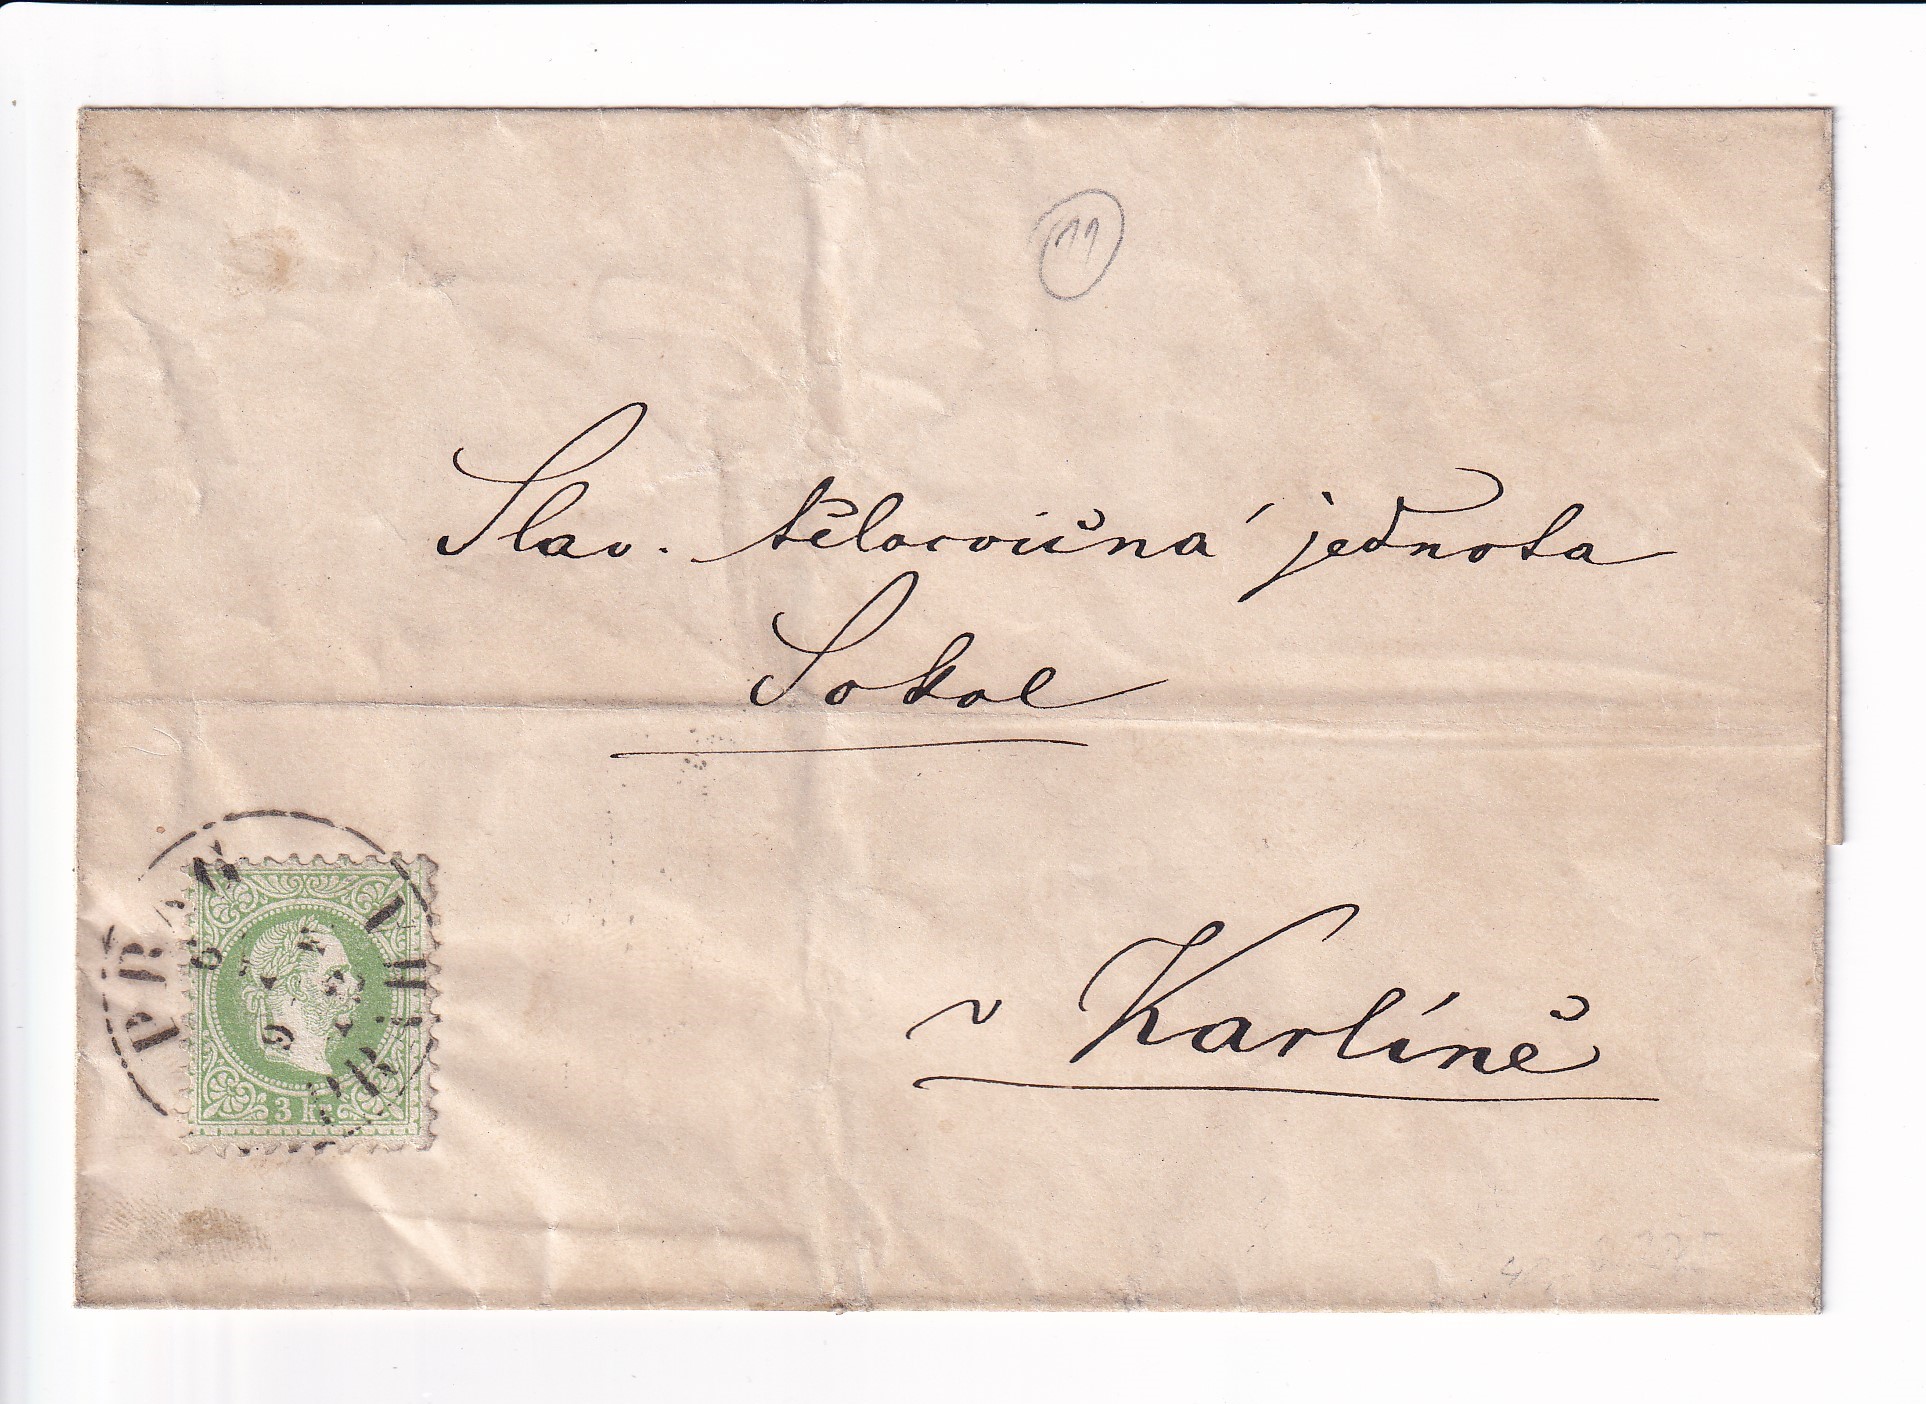 11
Slav. tělocvičná jednota
Sokol
v Karlíně
3 kr